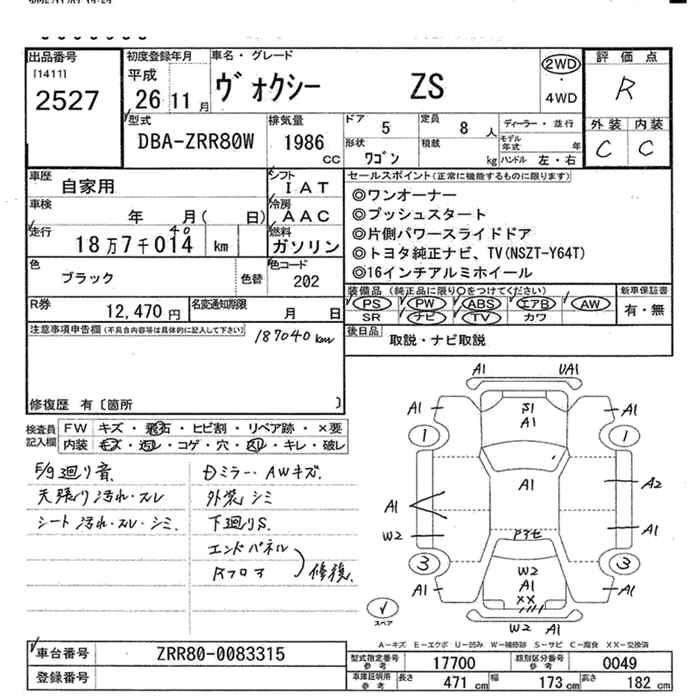 出品番号
[1411]
2527
初度登録年月
平成
26 11月
車名・グレード
ヴォクシー ZS
2WD
・
4WD
評価点
R
外装 内装
C C
型式
DBA-ZRR80W
排気量
1986
CC
ドア
5
定員
8 人
形状
ワゴン
積載
kg
ディーラー・並行
モデル年式 年
ハンドル 左・右
車歴
自家用
シフト
IAT
車検
年 月( 日)
冷房
AAC
走行
18万7千014 km
40
燃料
ガソリン
色
ブラック
色替
色コード
202
R券
12,470円
名変通知期限
月 日
セールスポイント(正常に機能するものに限ります)
◎ワンオーナー
◎プッシュスタート
◎片側パワースライドドア
◎トヨタ純正ナビ、TV(NSZT-Y64T)
◎16インチアルミホイール
装備品 (純正品に限り○をつけてください)
新車保証書
PS PW ABS エアB AW
SR ナビ TV カワ
有・無
後日品
取説・ナビ取説
注意事項申告欄(不具合内容等は具体的に記入して下さい)
187040km
修復歴 有〔箇所 〕
検査員
記入欄
FW キズ・飛石・ヒビ割・リペア跡・×要
内装 キズ・汚レ・コゲ・穴・スレ・キレ・破レ
F/9廻り音
天張り汚れ・スレ
シート汚れ・スレ・シミ
Dミラー・AWキズ
外装シミ
下廻りS
エンドパネル
Rフロア
修復
A1 UA1
A1 S1 A1
A1
1 1
A1 A2
A1
W2 A1
アセ
3 3
W2
A1 A1 A1
××
W2 A1
スペア
A-キズ E-エクボ U-凹み W-補修跡 S-サビ C-腐食 XX-交換済
車台番号
ZRR80-0083315
登録番号
型式指定番号
参考
17700
類別区分番号
参考
0049
車庫証明用
参考
長さ
471 cm
幅
173 cm
高さ
182 cm